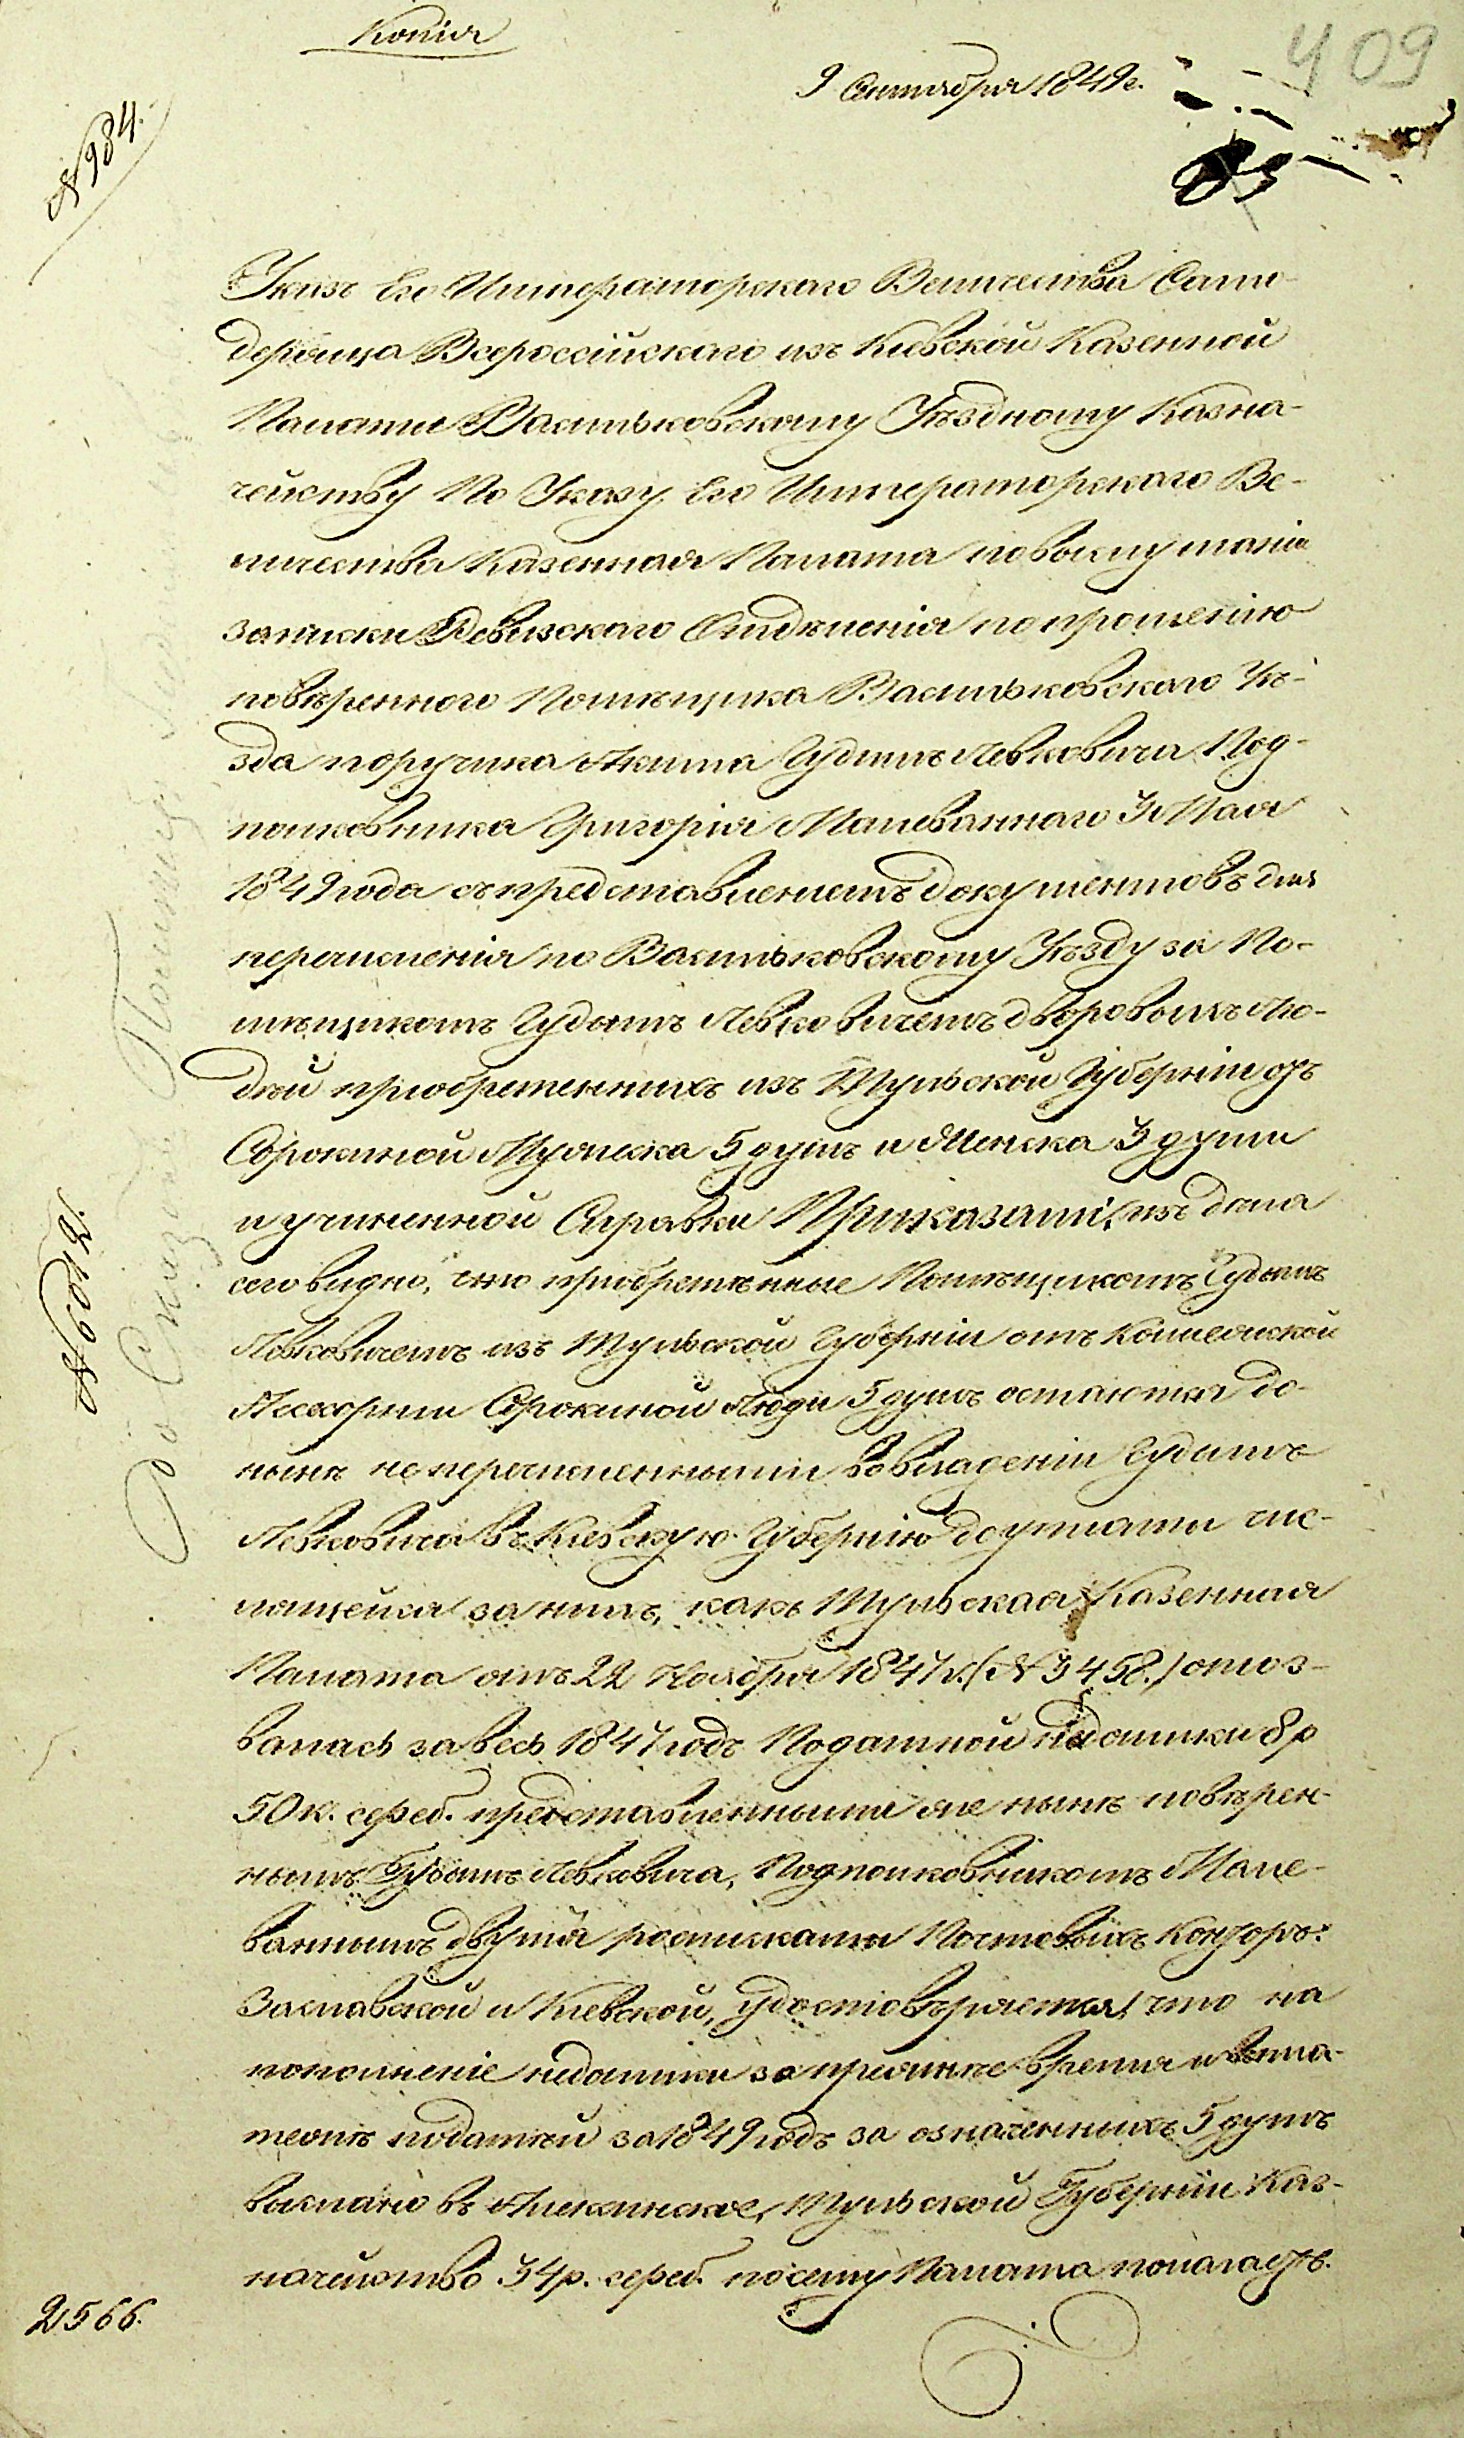 Копія
409
9 Сентября 1849 г.
№ 984.
Указъ Его Императорскаго Величества Само-
держца Всероссійскаго изъ Кіевской Казенной
Палаты Васильковскому Уѣздному Казна-
чейству По Указу Его Императорскаго Ве-
личества Казенная Палата по выслушаніи
записки Ревизскаго Отдѣленія по прошенію
повѣреннаго Помѣщика Васильковскаго Уѣ-
зда поручика Акима Гудимъ Левковича Под-
полковника Григорія Малеваннаго 3 Мая
1849 года съ представленіемъ документовъ для
перечисленія по Васильковскому Уѣзду за По-
мѣщикомъ Гудымъ Левковичемъ дворовыхъ Лю-
дей приобретенныхъ изъ Тульской Губерніи отъ
Сорокиной Мужеска 5 душъ и Женска 3 души
и учиненной Справки Приказали, изъ дѣла
сего видно, что приобретѣнные Помѣщикомъ Гудымъ
Левковичемъ изъ Тульской Губерніи отъ Коллежской
Ассесорши Сорокиной Люди 5 душъ остаются до-
нынѣ не перечисленными во владеніи Гудимъ
Левковича въ Кіевскую Губернію до уплаты чис-
лящейся за ними, какъ Тульская Казенная
Палата отъ 22 Ноября 1847 г. (№ 3458.) отоз-
валась за весь 1847 годъ Податной недоимки 8 р
50 к. сереб. представленными же нынѣ повѣрен-
нымъ Гудымъ Левковича, Подполковникомъ Мале-
ваннымъ двумя росписками Почтовыхъ Конторъ:
Заславской и Кіевской, удостовѣряется, что на
пополненіе недоимки за прежнее время и въ пла-
тежъ податей за 1849 годъ за означенныхъ 5 душъ
выслано въ Алексинское, Тульской Губерніи Каз-
начейство 34 р. сереб. по сему Палата полагаетъ.
№ 6012.
2566.